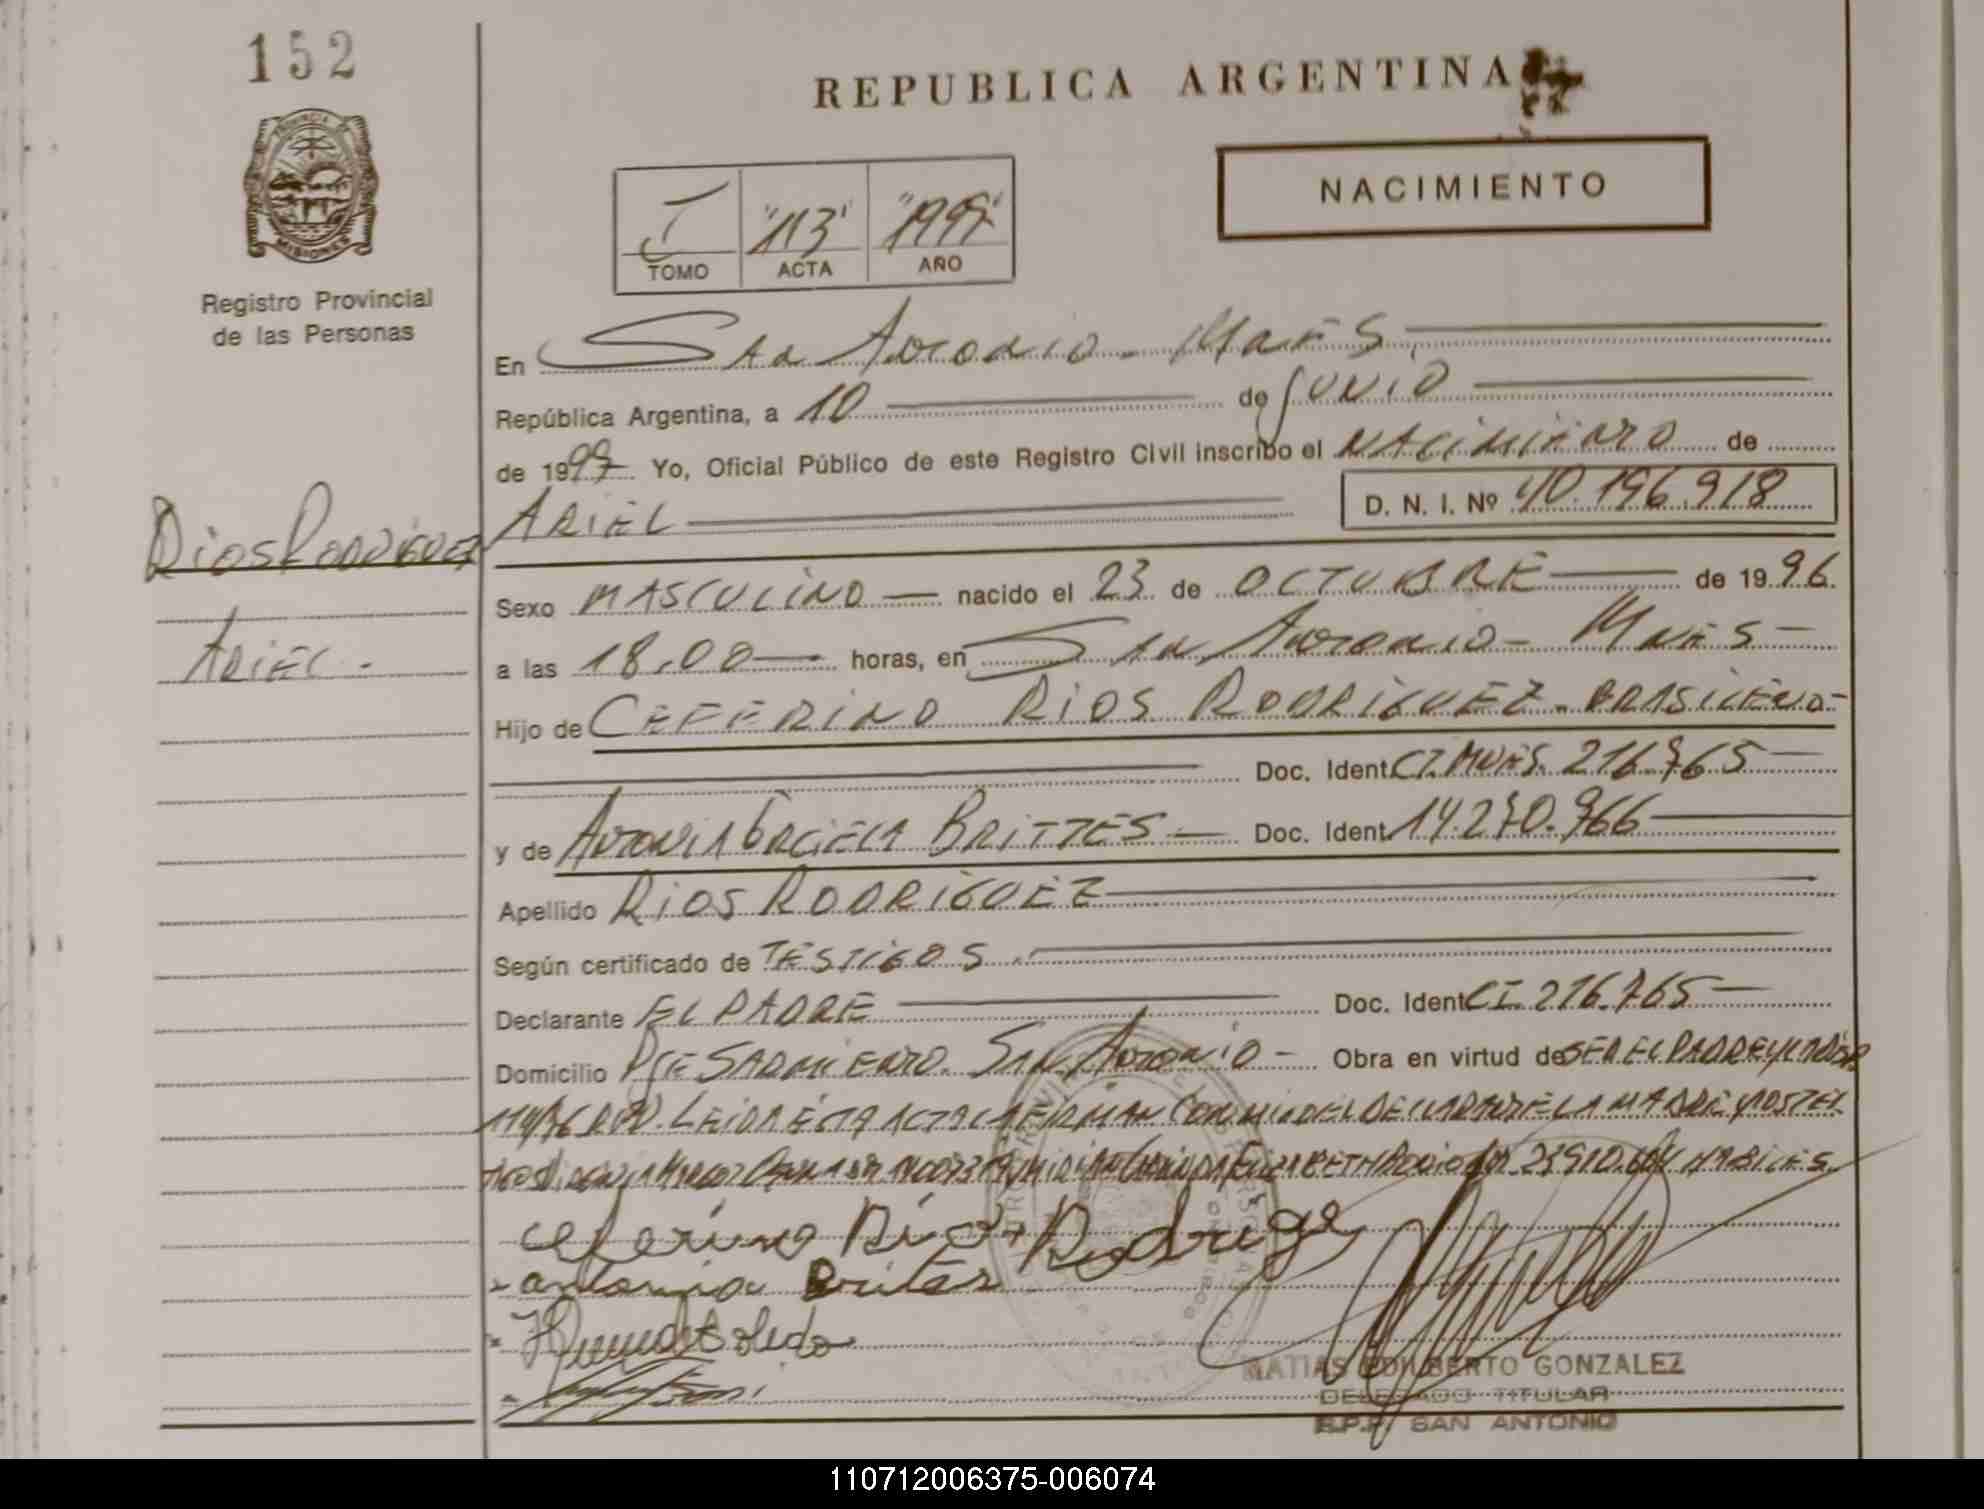 152
REPUBLICA ARGENTINA
PROVINCIA DE
MISIONES
NACIMIENTO
I "113" "1997"
TOMO ACTA AÑO
Registro Provincial
de las Personas
En San Antonio - Mnes.
República Argentina, a 10 de Junio
de 1997 Yo, Oficial Público de este Registro Civil inscribo el NACIMIENTO de
ARIEL D. N. I. Nº 40.196.918
Rios Rodriguez
Ariel.-
Sexo MASCULINO nacido el 23 de OCTUBRE de 1996.
a las 18.00 horas, en San Antonio - Mnes -
Hijo de CEFERINO RIOS RODRIGUEZ - BRASILENO -
Doc. Ident. CI. MNES. 216.765
y de Antonia Graciela BRITTES Doc. Ident. 14.270.966
Apellido RIOS RODRIGUEZ
Según certificado de TESTIGOS.
Declarante EL PADRE Doc. Ident. CI. 216.765
Domicilio Pje SARMIENTO. San Antonio - Obra en virtud de SER EL PADRE Y
LEIDA ESTA ACTA LA FIRMAN CONMIGO EL DECLARANTE LA MADRE Y LOS TES
TIGOS ELIZABETH HABILES.
ceferino Rios Rodrige
antonia Brites
MATIAS EDILBERTO GONZALEZ
DELEGADO TITULAR
R.P.P. SAN ANTONIO
110712006375-006074